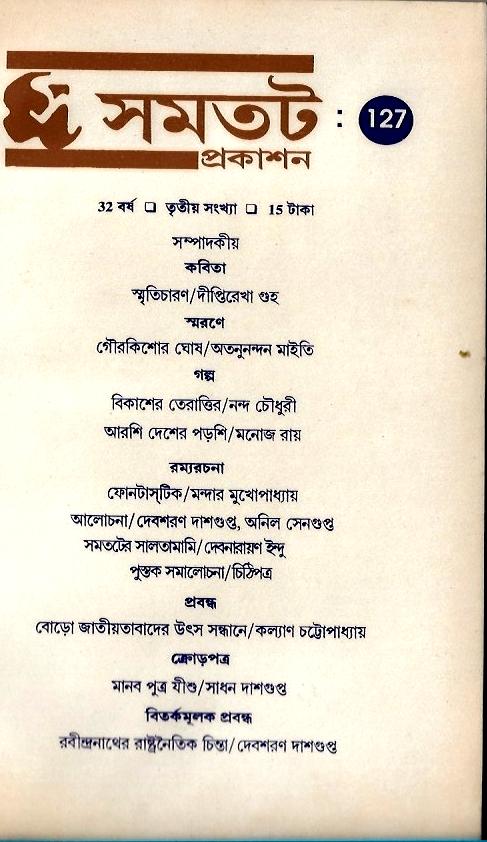 সমতট : 127
প্রকাশন
32 বর্ষ ❑ তৃতীয় সংখ্যা ❑ 15 টাকা
সম্পাদকীয়
কবিতা
স্মৃতিচারণ/দীপ্তিরেখা গুহ
স্মরণে
গৌরকিশোর ঘোষ/অতনুনন্দন মাইতি
গল্প
বিকাশের তেরাত্তির/নন্দ চৌধুরী
আরশি দেশের পড়শি/মনোজ রায়
রম্যরচনা
ফোনটাস্‌টিক/মন্দার মুখোপাধ্যায়
আলোচনা/দেবশরণ দাশগুপ্ত, অনিল সেনগুপ্ত
সমতটের সালতামামি/দেবনারায়ণ ইন্দু
পুস্তক সমালোচনা/চিঠিপত্র
প্রবন্ধ
বোড়ো জাতীয়তাবাদের উৎস সন্ধানে/কল্যাণ চট্টোপাধ্যায়
ক্রোড়পত্র
মানব পুত্র যীশু/সাধন দাশগুপ্ত
বিতর্কমূলক প্রবন্ধ
রবীন্দ্রনাথের রাষ্ট্রনৈতিক চিন্তা/দেবশরণ দাশগুপ্ত